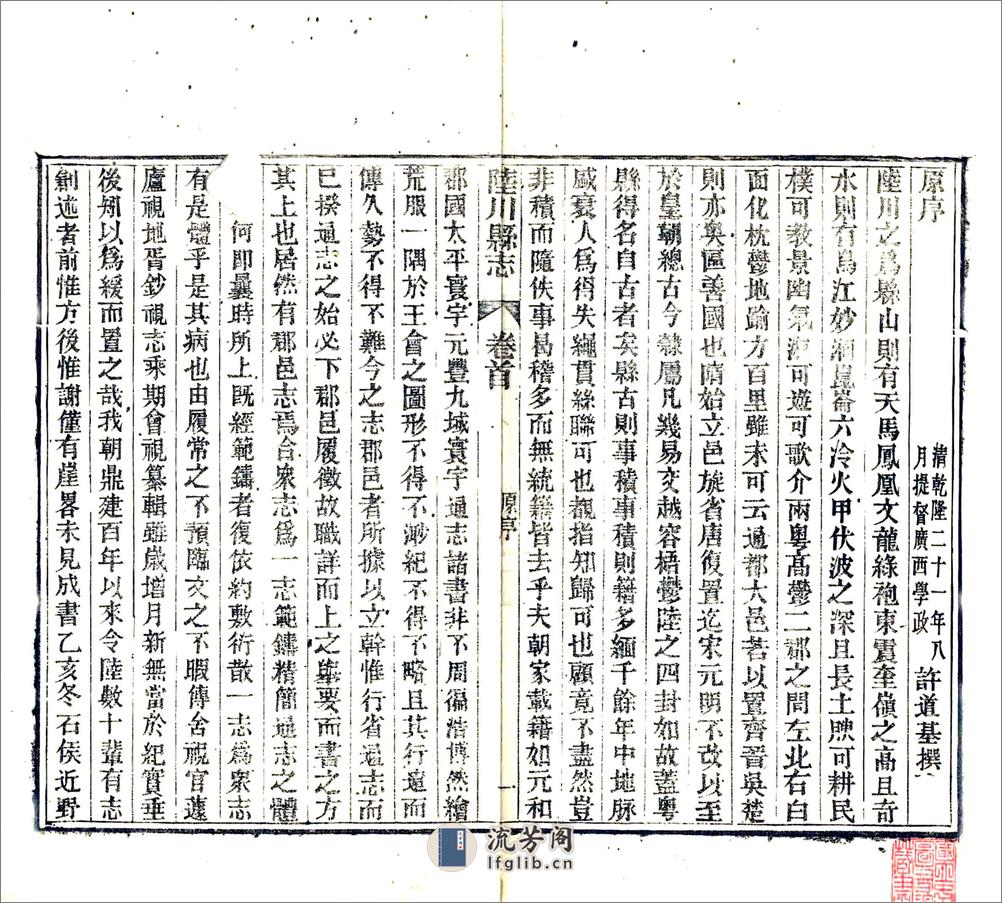 原序
清乾隆二十一年八
月提督廣西學政
許道基撰
陸川之爲縣山則有天馬鳳凰文龍綠袍東震奎嶺之高且奇
水則有烏江妙洞崑崙六泠火甲伏波之深且長土腴可耕民
樸可教景幽氣淑可遊可歌介兩粵高鬱二郡之間左北右白
面化枕鬱地踰方百里雖未可云通都大邑若以置齊晉吳楚
則亦奧區善國也隋始立邑旋省唐復置迄宋元明不改以至
於皇朝總古今隸屬凡幾易交越容梧鬱陸之四封如故蓋粵
縣得名自古者矣縣古則事積事積則籍多緬千餘年中地脉
盛衰人爲得失繩貫絲聯可也觀指知歸可也顧竟不盡然豈
非積而隨佚事曷稽多而無統籍皆去乎夫朝家載籍如元和
陸川縣志
卷首
原序
一
郡國太平寰宇元豐九域寰宇通志諸書非不周徧浩博然繪
荒服一隅於王會之圖形不得不渺紀不得不略且其行遠而
傳久勢不得不難今之志郡邑者所據以立幹惟行省通志而
已揆通志之始必下郡邑履徵故職詳而上之舉要而書之方
其上也居然有郡邑志焉合眾志爲一志範鑄精簡通志之體
何即曩時所上既經範鑄者復依約敷衍散一志爲眾志
有是體乎是其病也由履常之不預臨文之不暇傳舍視官蘧
廬視地胥鈔視志乘期會視纂輯雖歲增月新無當於紀實垂
後知以爲緩而置之哉我朝鼎建百年以來令陸數十輩有志
創述者前惟方後惟謝僅有崖畧未見成書乙亥冬石侯近野
流芳阁
lfglib.cn